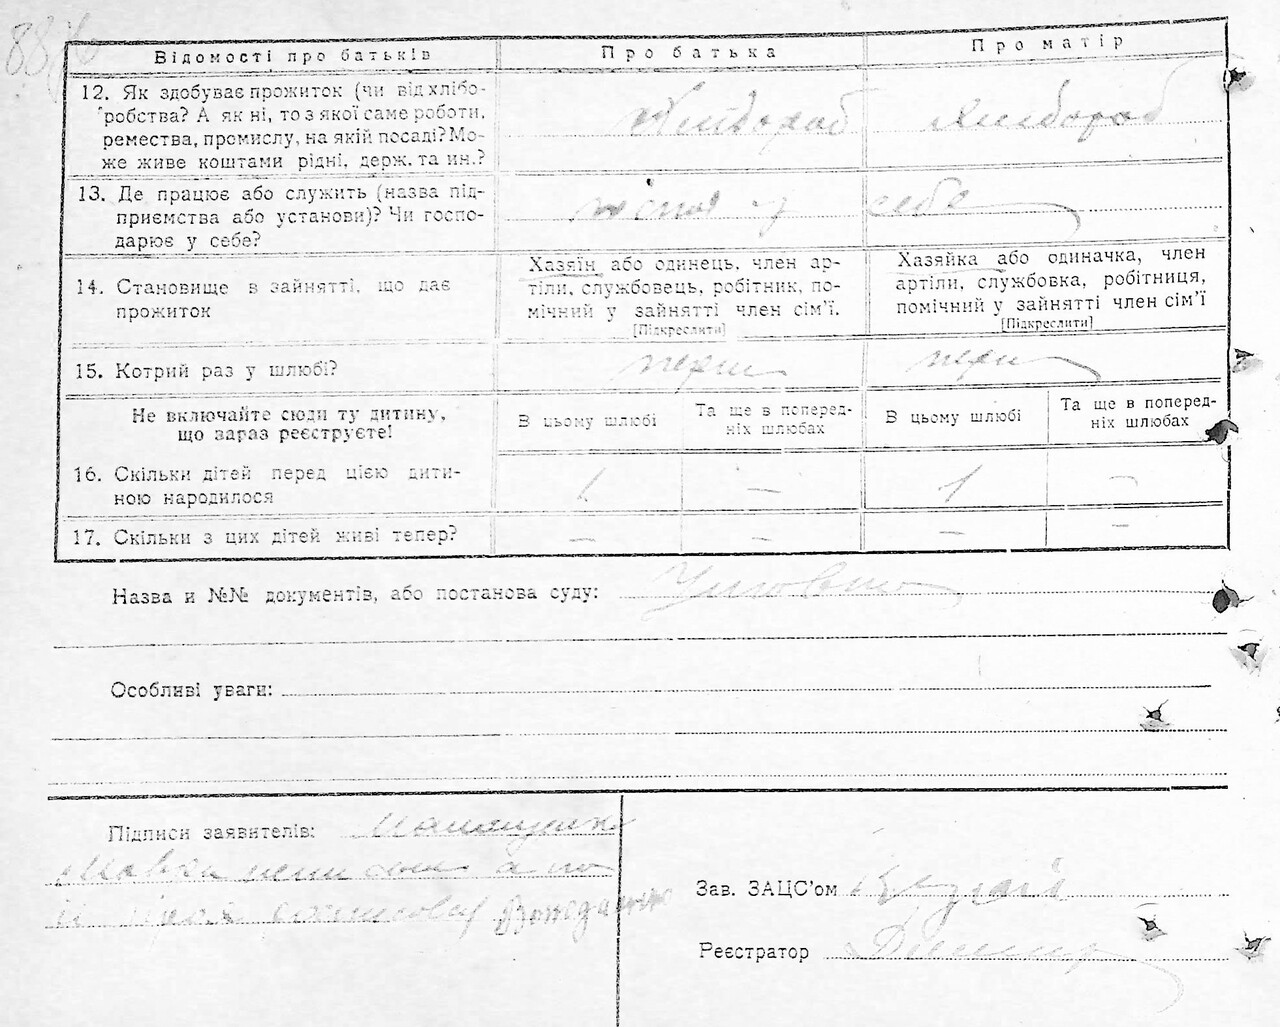 88
Відомості про батьків
Про батька
Про матір
12. Як здобуває прожиток (чи від хлібо-
робства? А як ні, то з якої саме роботи,
ремества, промислу, на якій посаді? Мо-
же живе коштами рідні, держ. та ин.?
Хлибороб
Хлибороб
13. Де працює або служить (назва під-
приємства або установи)? Чи госпо-
дарює у себе?
у себе
14. Становище в зайнятті, що дає
прожиток
Хазяїн або одинець, член ар-
тіли, службовець, робітник, по-
мічний у зайнятті член сім'ї.
[Підкреслити]
Хазяйка або одиначка, член
артіли, службовка, робітниця,
помічний у зайнятті член сім'ї
[Підкреслити]
15. Котрий раз у шлюбі?
перш
перш
Не включайте сюди ту дитину,
що зараз реєструєте!
В цьому шлюбі
Та ще в поперед-
ніх шлюбах
В цьому шлюбі
Та ще в поперед-
ніх шлюбах
16. Скільки дітей перед цією дити-
ною народилося
1
—
1
—
17. Скільки з цих дітей живі тепер?
—
—
—
—
Назва и №№ документів, або постанова суду:
Особливі уваги:
Підписи заявителів:
Зав. ЗАЦС'ом
Реєстратор